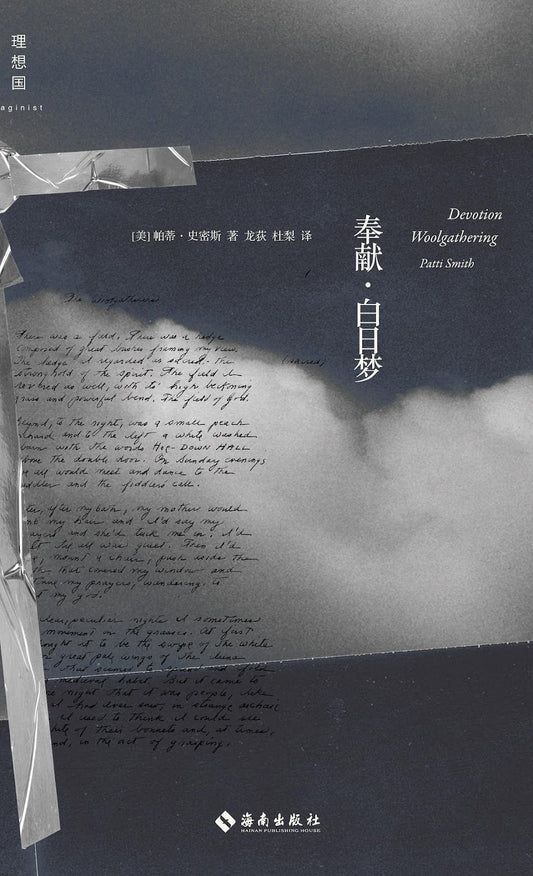 理想国
aginist
[美] 帕蒂·史密斯 著 龙荻 杜梨 译
奉献·白日梦
Devotion
Woolgathering
Patti Smith
The woolgatherers
There was a field. There was a hedge
composed of great bushes framing my view.
The hedge I regarded as sacred. The (sacred)
stronghold of the spirit. The field I
revered as well, with its high beckoning
grass and powerful bend. The field of God.
Beyond, to the right, was a small peach
orchard and to the left a white washed
barn with the words HOE-DOWN HALL
above the double door. On Sunday evenings
we all would meet and dance to the
fiddler and the fiddlers call.
after my bath, my mother would
my hair and I'd say my
and she'd tuck me in. I'd
all was quiet. Then I'd
mount a chair, push aside the
that covered my window and
my prayers, wandering, to
my god.
clear, peculiar nights I sometimes
movement in the grasses. At first
it to be the swipe of the white
great pale wings of the luna
that seemed to
medieval habit. But it came to
night that it was people, like
I had ever seen, in strange archaic
I used to think I could see
white of their bonnets and, at times,
in the act of grasping.
海南出版社
HAINAN PUBLISHING HOUSE